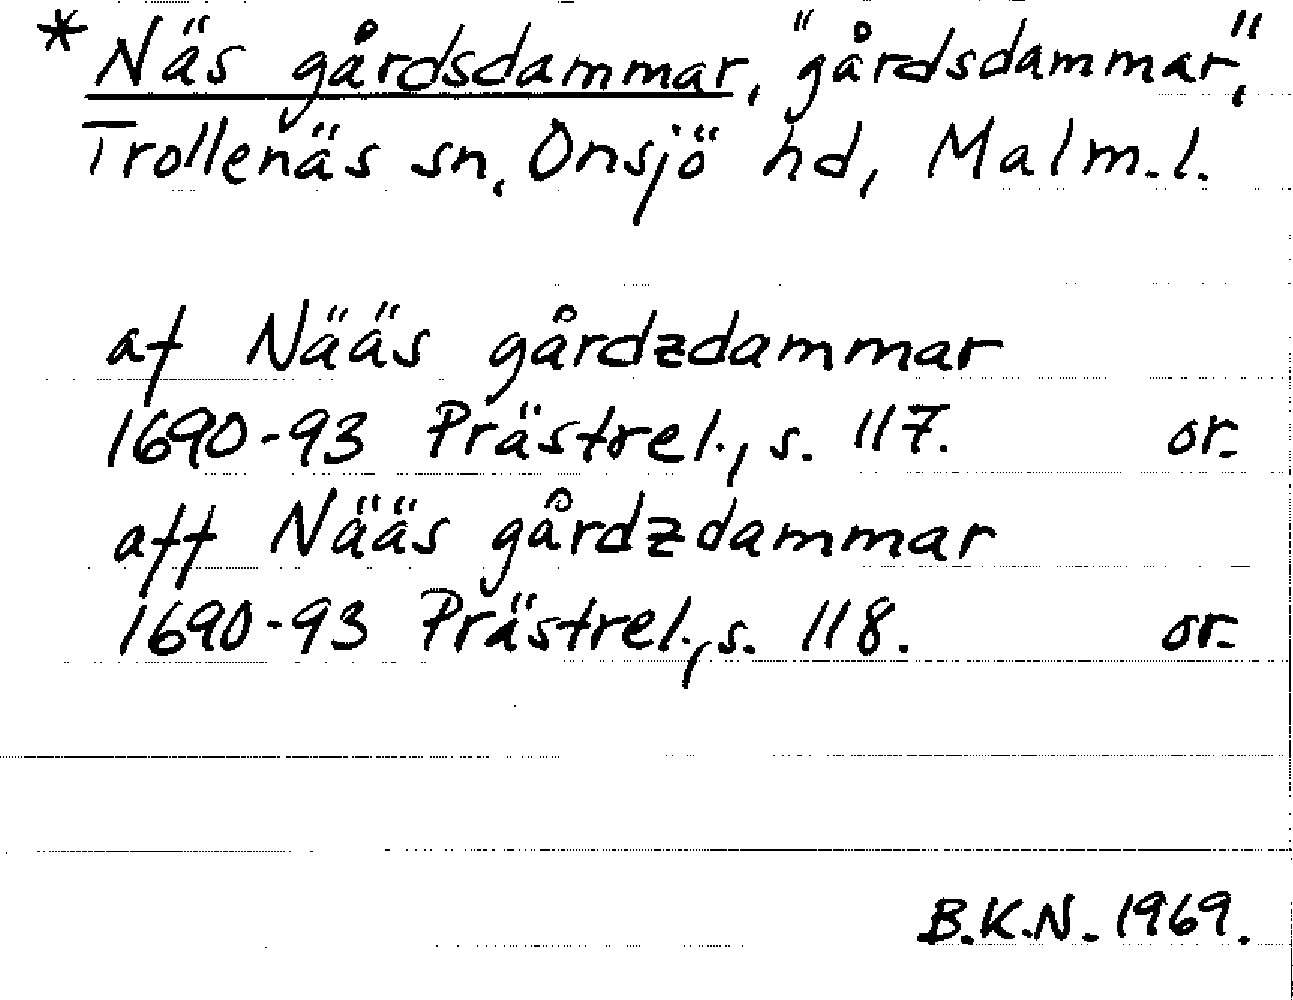 * Näs gårdsdammar, "gårdsdammar",
Trollenäs sn, Onsjö hd, Malm.l.
af Nääs gårdzdammar
1690-93 Prästrel., s. 117. or.
aff Nääs gårdzdammar
1690-93 Prästrel., s. 118. or.
B.K.N. 1969.